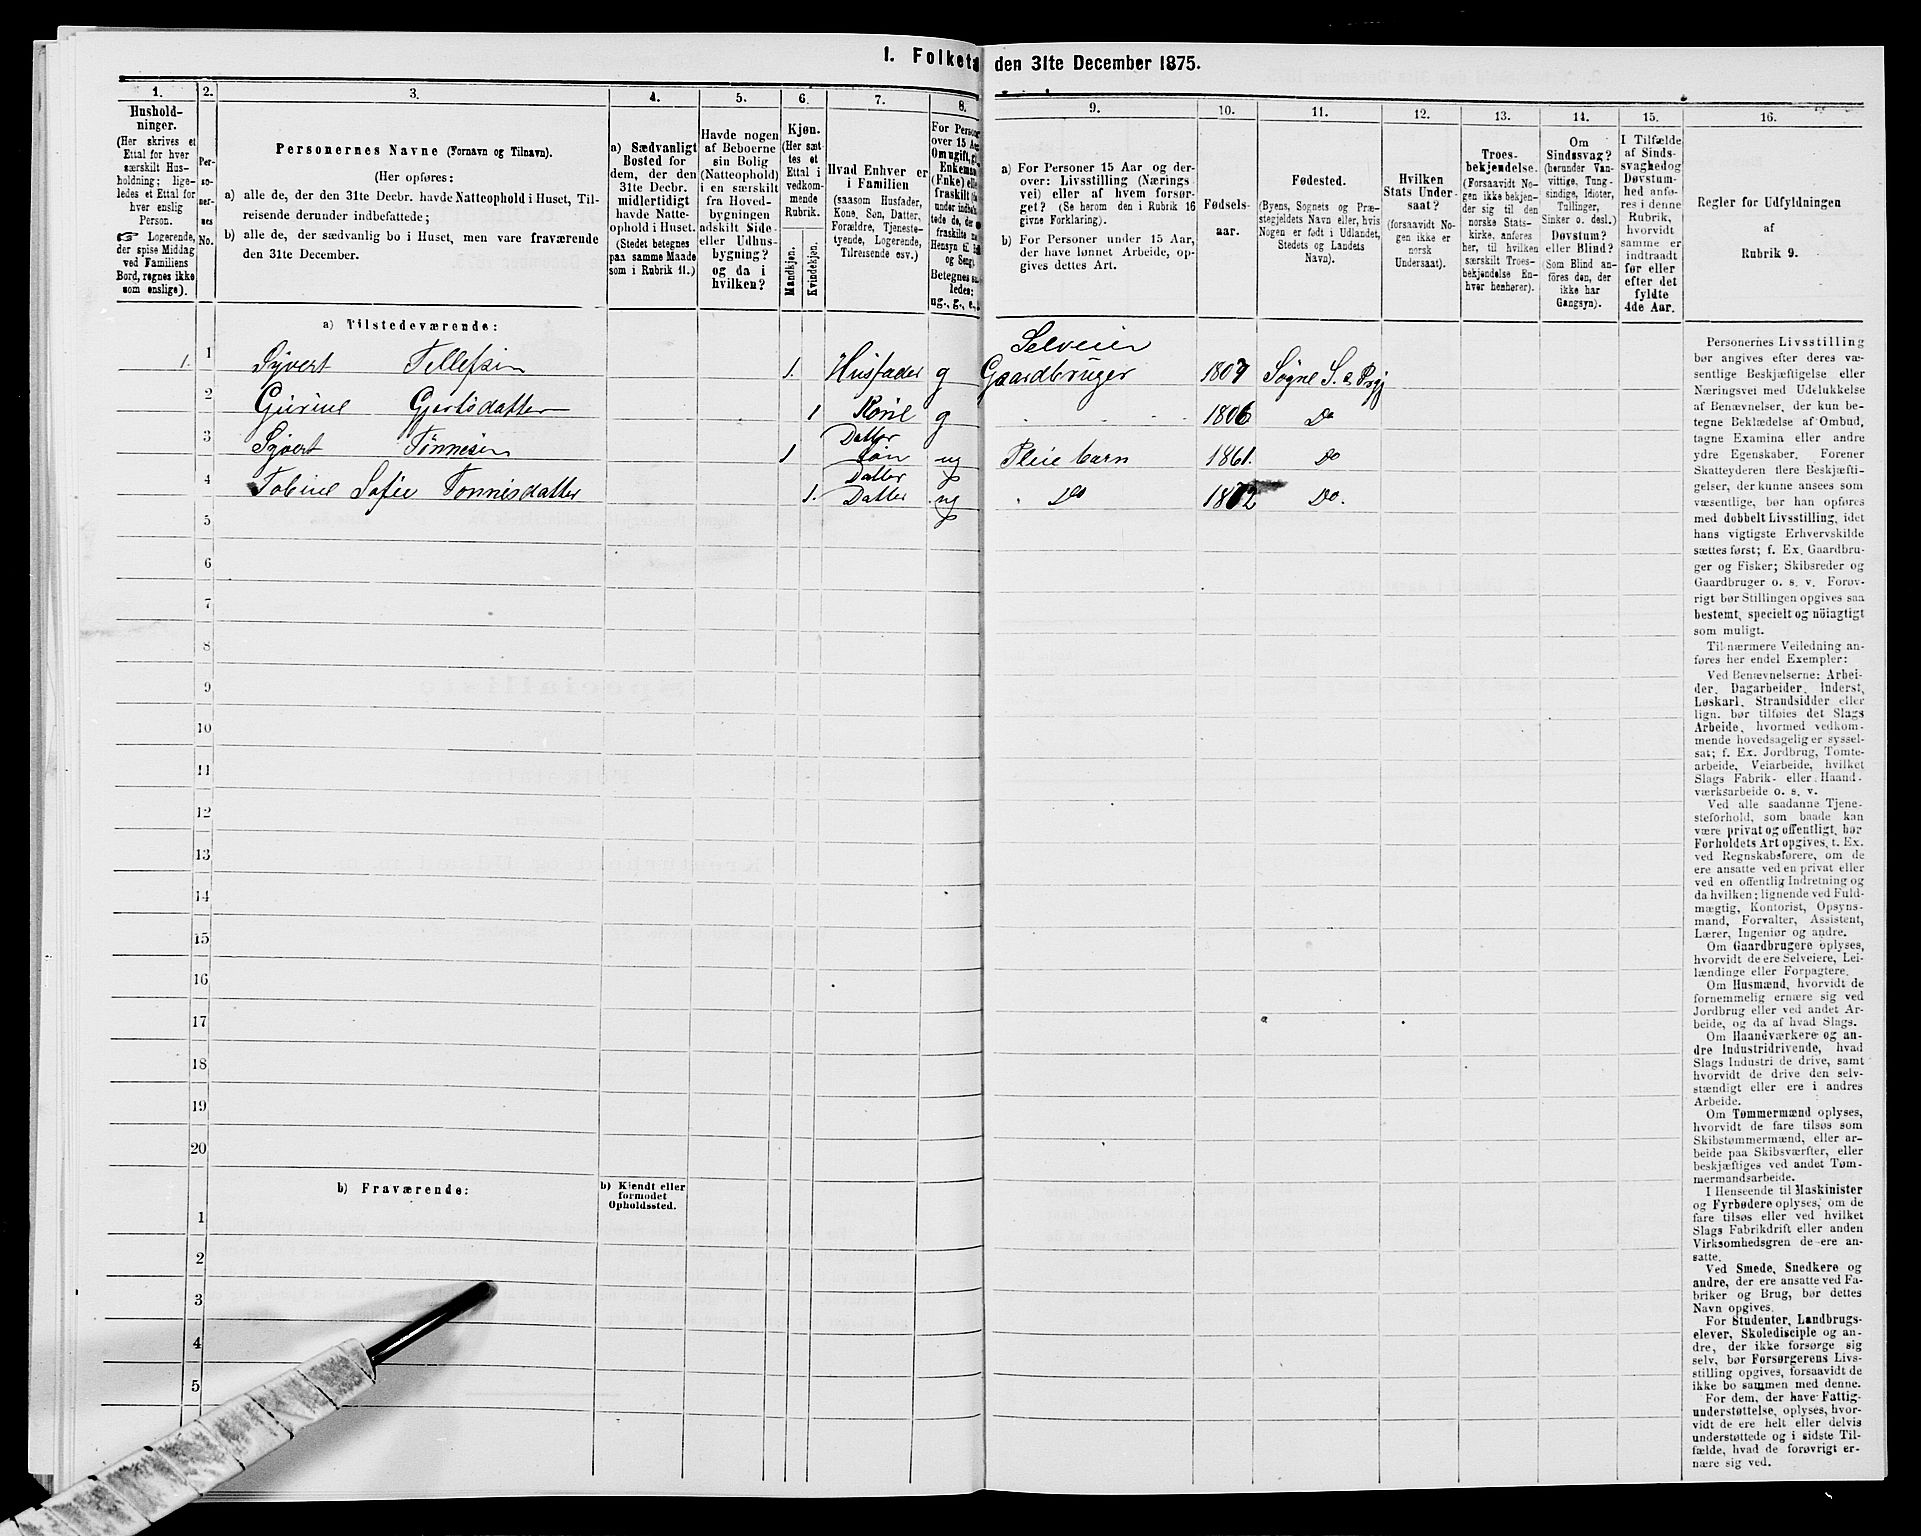 I. Folketal den 31te December 1875.
1.
Hushold-
ninger.
(Her skrives et
Ettal for hver
særskilt Hus-
holdning; lige-
ledes et Ettal for
hver enslig
Person.
☞ Logerende,
der spise Middag
ved Familiens
Bord, regnes ikke
som enslige).
2.
Per-
so-
ner-
nes
No.
3.
Personernes Navne (Fornavn og Tilnavn).
(Her opføres:
a) alle de, der den 31te Decbr. havde Natteophold i Huset, Til-
reisende derunder indbefattede;
b) alle de, der sædvanlig bo i Huset, men vare fraværende
den 31te December.
4.
a) Sædvanligt
Bosted for
dem, der den
31te Decbr.
midlertidigt
havde Natte-
ophold i Huset.
(Stedet betegnes
paa samme Maade
som i Rubrik 11.)
5.
Havde nogen
af Beboerne
sin Bolig
(Natteophold)
i en særskilt
fra Hoved-
bygningen
adskilt Side-
eller Udhus-
bygning?
og da i
hvilken?
6.
Kjøn.
(Her sæt-
tes et
Ettal i
vedkom-
mende
Rubrik.
Mandkjøn.
Kvindekjøn.
7.
Hvad Enhver er
i Familien
(saasom Husfader,
Kone, Søn, Datter,
Forældre, Tjeneste-
tyende, Logerende,
Tilreisende osv.)
8.
For Person
over 15 Aa
Om ugift, g
Enkeman
(Enke) elle
fraskilt
under indbe
tede de, der
fraskilte
Hensyn til
og Seng.
Betegnes sa
ledes:
ug., g., e.,
9.
a) For Personer 15 Aar og der-
over: Livsstilling (Nærings
vei) eller af hvem forsør-
get? (Se herom den i Rubrik 16
givne Forklaring).
b) For Personer under 15 Aar,
der have lønnet Arbeide, op-
gives dettes Art.
10.
Fødsels-
aar.
11.
Fødested.
(Byens, Sognets og Præ-
stegjeldets Navn eller, hvis
Nogen er født i Udlandet,
Stedets og Landets
Navn).
12.
Hvilken
Stats Under-
saat?
(forsaavidt No-
gen ikke er
norsk
Undersaat).
13.
Troes-
bekjendelse.
(Forsaavidt No-
gen ikke bekjen-
der sig til den
norske Stats-
kirke, anføres
her, til hvilken
særskilt Troes-
bekjendelse En-
hver henhører).
14.
Om
Sindssvag?
(herunder Van-
vittige, Tung-
sindige, Idioter,
Tullinger,
Sinker o. desl.)
Døvstum?
eller Blind?
(Som Blind an-
føres den, der
ikke har
Gangsyn).
15.
I Tilfælde
af Sinds-
svaghed og
Døvstum-
hed anfø-
res i denne
Rubrik,
hvorvidt
samme er
indtraadt
før eller
efter det
fyldte
4de Aar.
16.
Regler for Udfyldningen
af
Rubrik 9.
a) Tilstedeværende:
Selveier
1. 1 Syvert Tellefsen 1. Husfader g Gaardbruger 1807 Søgne S. & Prgj
2 Gurine Gjertsdatter 1 Kone g 1806 Do
Datter
3 Syvert Tønnesen 1 Søn ug Pleiebarn 1861. Do
Datter
4 Tobine Sofie Tonnesdatter 1. Datter ug Do 1872 Do.
5
6
7
8
9
10
11
12
13
14
15
16
17
18
19
20
b) Fraværende:
b) Kjendt eller
formodet
Opholdssted.
1
2
3
4
5
Personernes Livsstilling
bør angives efter deres væ-
sentlige Beskjæftigelse eller
Næringsvei med Udelukkelse
af Benævnelser, der kun be-
tegne Beklædelse af Ombud,
tagne Examina eller andre
ydre Egenskaber. Forener
Skatteyderen flere Beskjæfti-
gelser, der kunne ansees som
væsentlige, bør han opføres
med dobbelt Livsstilling, idet
hans vigtigste Erhvervskilde
sættes først; f. Ex. Gaardbru-
ger og Fisker; Skibsreder og
Gaardbruger o. s. v. Forøv-
rigt bør Stillingen opgives saa
bestemt, specielt og nöiagtigt
som muligt.
Til nærmere Veiledning an-
føres her endel Exempler:
Ved Benævnelserne: Arbei-
der, Dagarbeider, Inderst,
Løskarl, Strandsidder eller
lign. bør tilføies det Slags
Arbeide, hvormed vedkom-
mende hovedsagelig er syssel-
sat; f. Ex. Jordbrug, Tomte-
arbeide, Veiarbeide, hvilket
Slags Fabrik- eller Haand-
værksarbeide o. s. v.
Ved alle saadanne Tjene-
steforhold, som baade kan
være privat og offentligt, bør
Forholdets Art opgives, f. Ex.
ved Regnskabsførere, om de
ere ansatte ved en privat eller
ved en offentlig Indretning og
da hvilken; lignende ved Fuld-
mægtig, Kontorist, Opsyns-
mand, Forvalter, Assistent,
Lærer, Ingeniør og andre.
Om Gaardbrugere oplyses,
hvorvidt de ere Selveiere, Lei-
lændinge eller Forpagtere.
Om Husmænd, hvorvidt de
fornemmelig ernære sig ved
Jordbrug eller ved andet Ar-
beide, og da af hvad Slags.
Om Haandværkere og an-
dre Industridrivende, hvad
Slags Industri de drive, samt
hvorvidt de drive den selv-
stændigt eller ere i andres
Arbeide.
Om Tømmermænd oplyses,
hvorvidt de fare tilsøs som
Skibstømmermænd, eller ar-
beide paa Skibsværfter, eller
beskjæftiges ved andet Tøm-
mermandsarbeide.
I Henseende til Maskinister
og Fyrbødere oplyses, om de
fare tilsøs eller ved hvilket
Slags Fabrikdrift eller anden
Virksomhedsgren de ere an-
satte.
Ved Smede, Snedkere og
andre, der ere ansatte ved Fa-
briker og Brug, bør dettes
Navn opgives.
For Studenter, Landbrugs-
elever, Skoledisciple og an-
dre, der ikke forsørge sig
selv, bør Forsørgerens Livs-
stilling opgives, forsaavidt de
ikke bo sammen med denne.
For dem, der have Fattig-
understøttelse, oplyses, hvor-
vidt de ere helt eller delvis
understøttede og i sidste Til-
fælde, hvad de forøvrigt er-
nære sig ved.